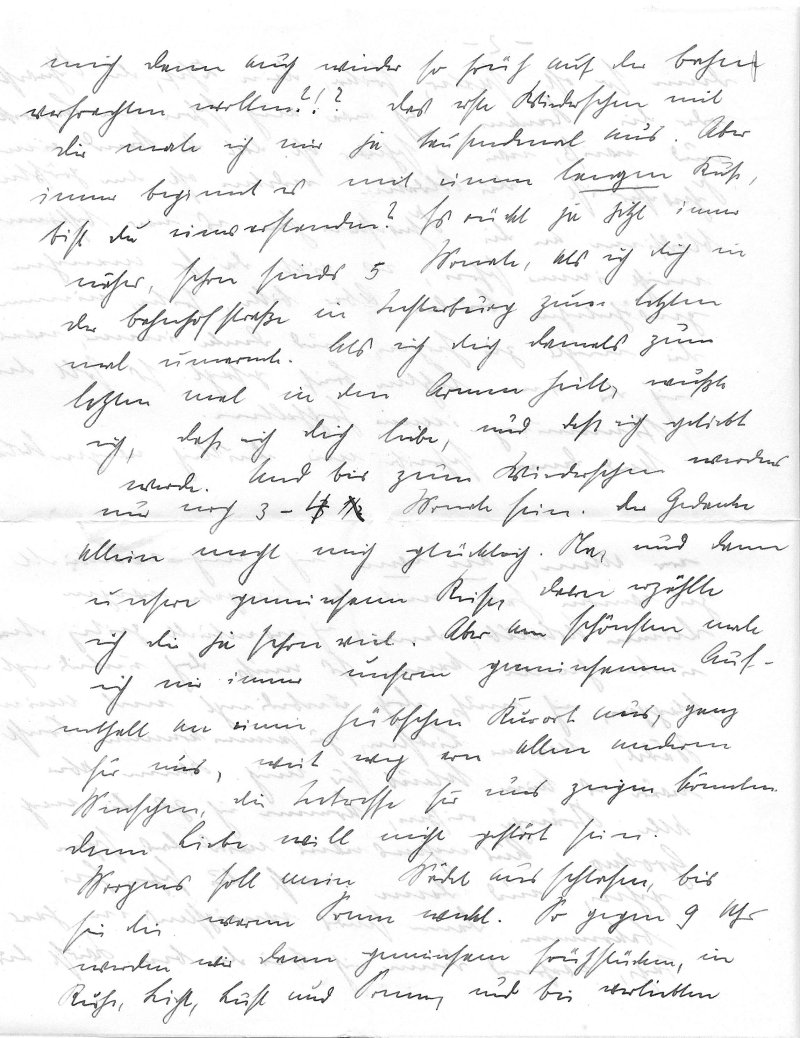 mich denn auch wieder so früh auf der Bahn
verfrachten wollen?!? Das erste Wiedersehen mit
dir male ich mir ja tausendmal aus. Aber
immer beginnt es mit einem langen Kuß,
bist du einverstanden? Es rückt ja jetzt immer
näher, schon sinds 5 Monate, als ich dich in
der Bahnhofstraße in Insterburg zum letzten
mal umarmte. Als ich dich damals zum
letzten mal in den Armen hielt, wußte
ich, daß ich dich liebe, und daß ich geliebt
werde. Und bis zum Wiedersehen werden
nur noch 3 - 4 Monate sein. Der Gedanke
allein macht mich glücklich. Na, und dann
unsere gemeinsame Reise, davon erzählte
ich dir ja schon viel. Aber am schönsten male
ich mir immer unseren gemeinsamen Auf-
enthalt an einem hübschen Kurort aus, ganz
für uns, weit weg von allen anderen
Menschen, die Interesse für uns zeigen könnten.
denn Liebe will nicht gestört sein.
Morgens soll mein Mädel ausschlafen, bis
sie die warme Sonne weckt. So gegen 9 Uhr
werden wir dann gemeinsam frühstücken, in
Ruhe, Licht, Luft und Sonne, und bei verliebten